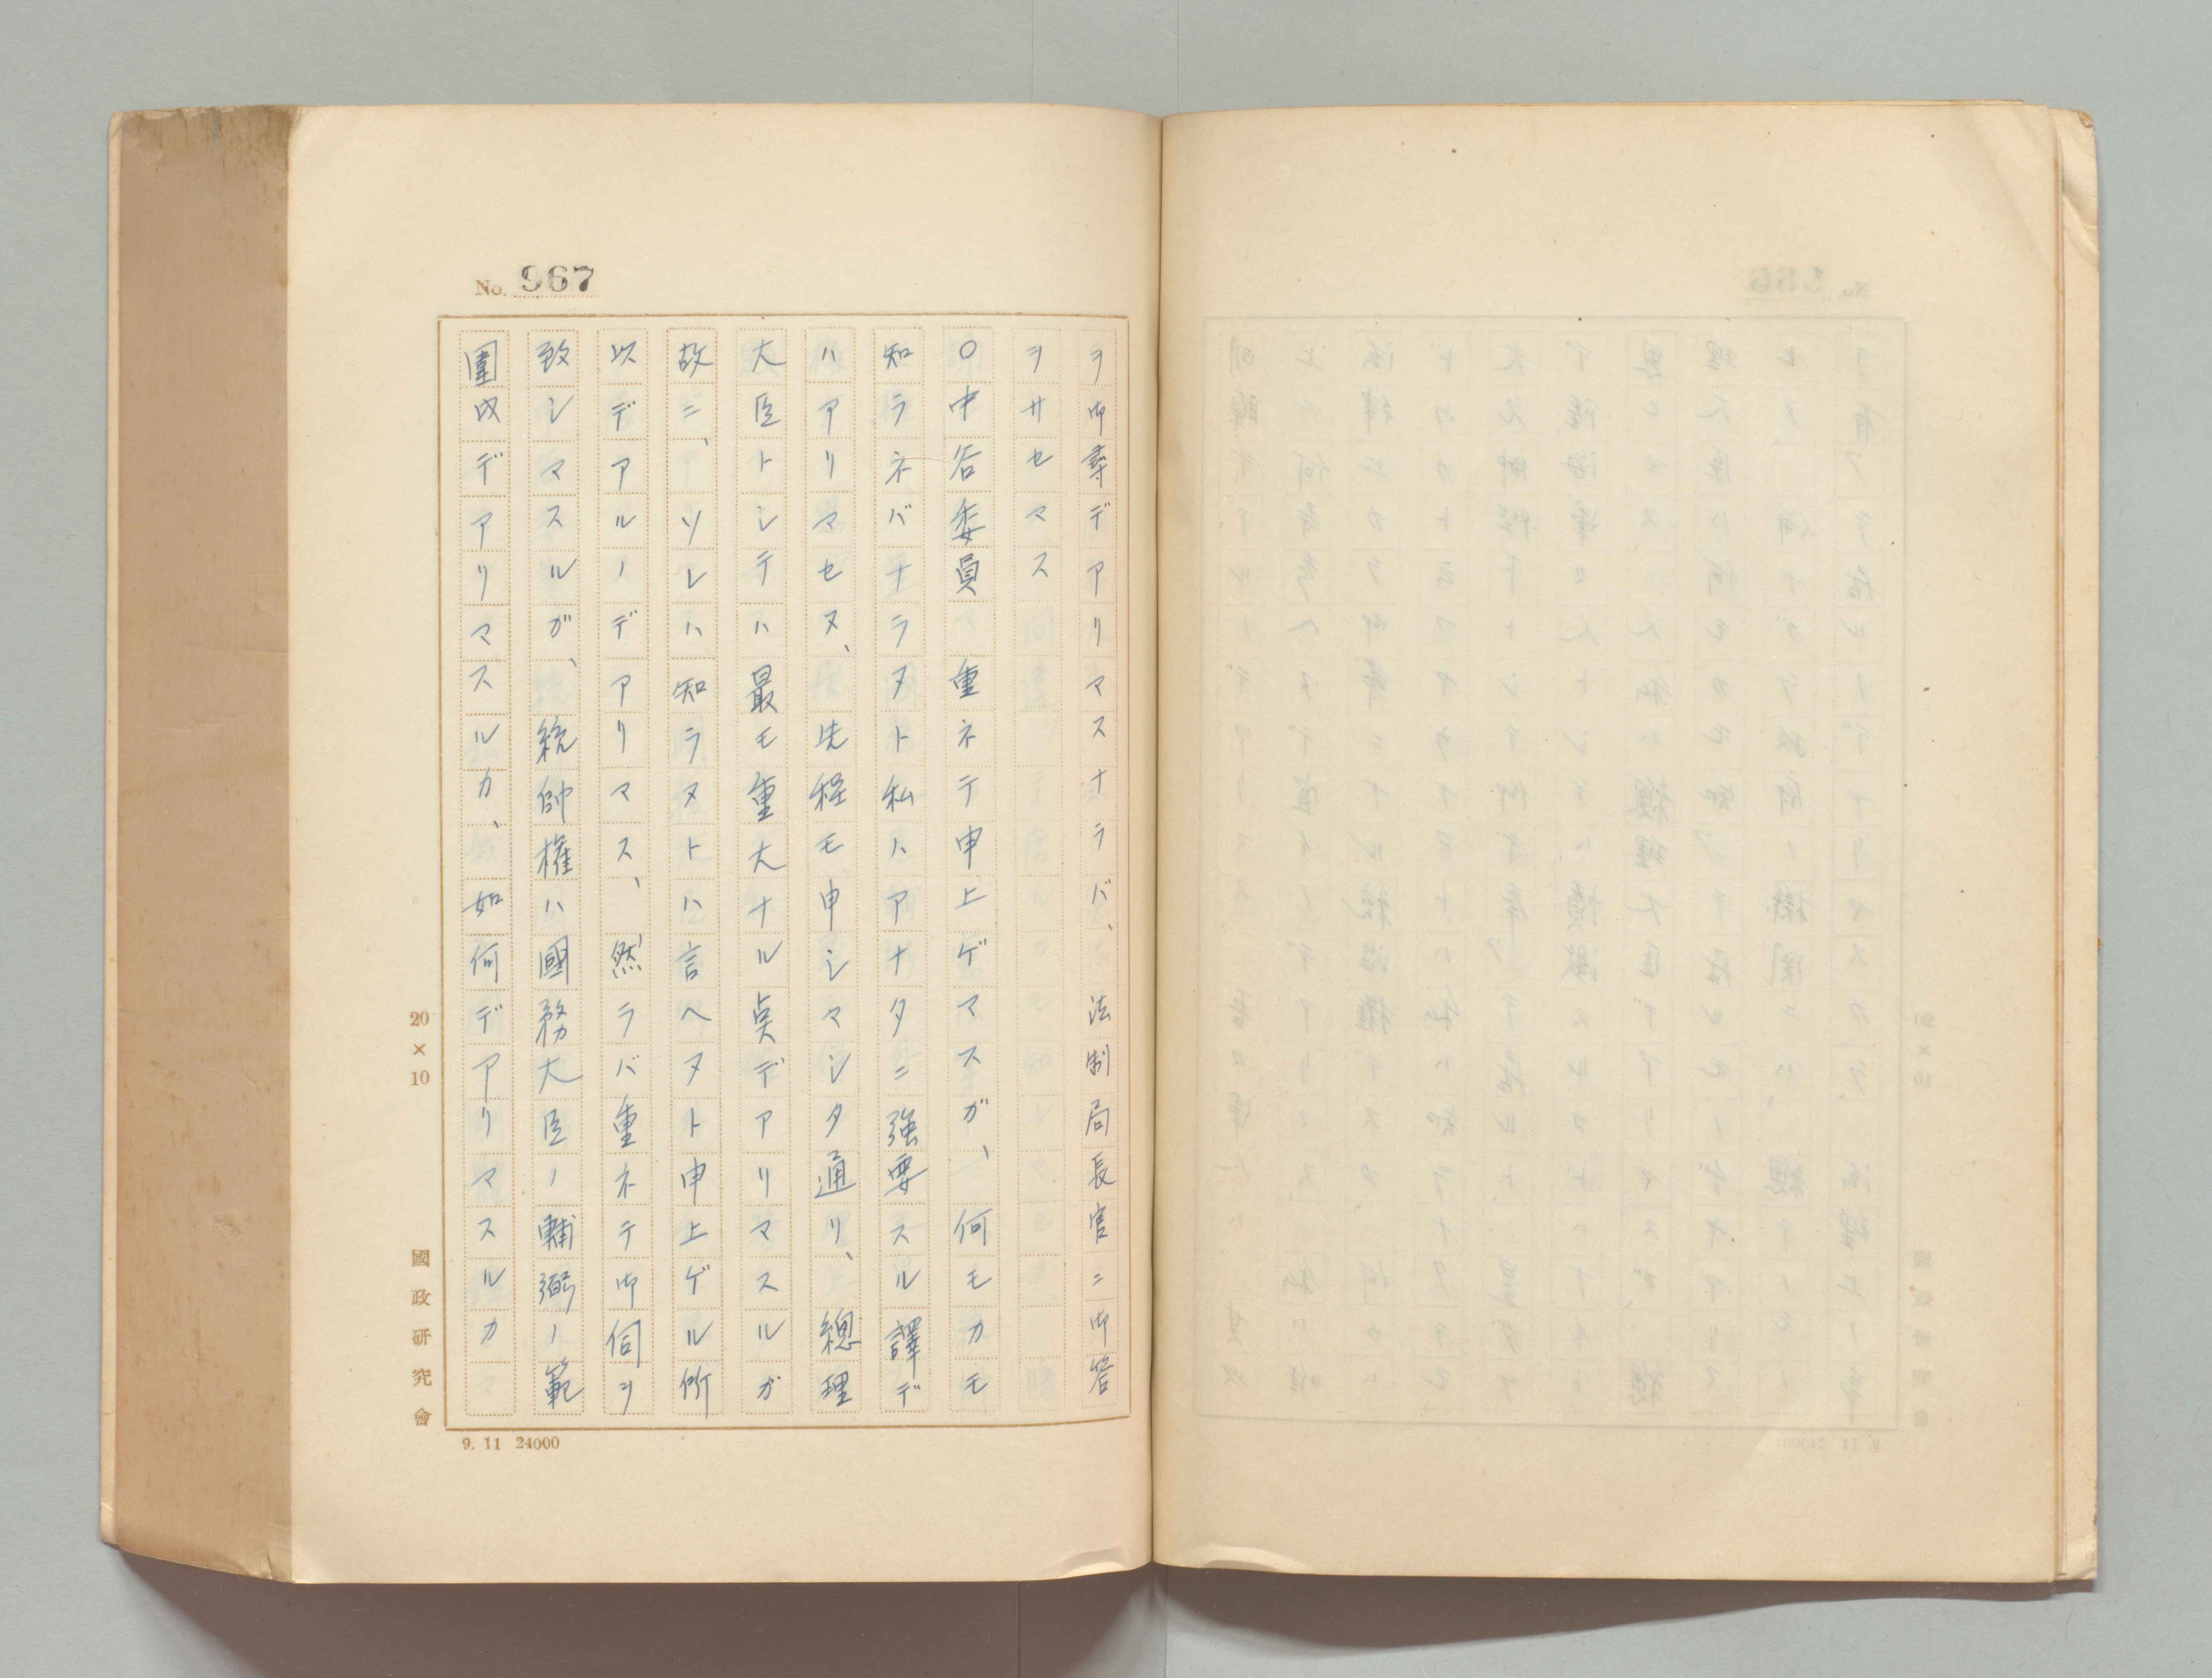 No. 967
ヲ御尋デアリマスナラバ、法制局長官ニ御答
ヲサセマス
〇中谷委員　重ネテ申上ゲマスガ、何モカモ
知ラネバナラヌト私ハアナタニ強要スル譯デ
ハアリマセヌ、先程モ申シマシタ通リ、總理
大臣トシテハ最モ重大ナル点デアリマスルガ
故ニ、ソレハ知ラヌトハ言ヘヌト申上ゲル所
以デアルノデアリマス、然ラバ重ネテ御伺ヲ
致シマスルガ、統帥權ハ國務大臣ノ輔弼ノ範
圍内デアリマスルカ、如何デアリマスルカ
20×10
國政研究會
9. 11 24000